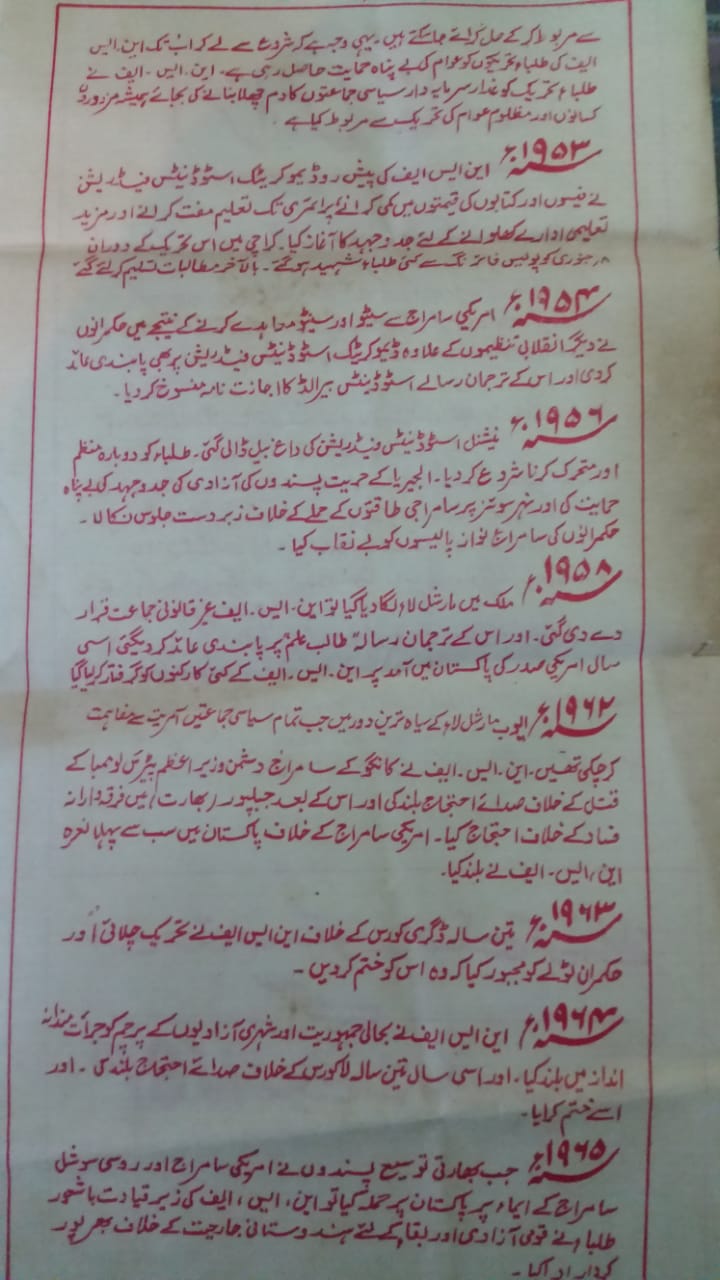 سے مربوط کر کے حل کرائے جا سکتے ہیں۔ یہی وجہ ہے کہ شروع سے لے کر اب تک این۔ ایس
ایف کی طلباء تحریکوں کو عوام کی بے پناہ حمایت حاصل رہی ہے۔ این۔ ایس۔ ایف نے
طلباء تحریک کو غدار سرمایہ دار سیاسی جماعتوں کا دم چھلا بنانے کی بجائے ہمیشہ مزدوروں
کسانوں اور مظلوم عوام کی تحریک سے مربوط کیا ہے۔
سنہ ۱۹۵۳ء این ایس ایف کی پیش رو ڈیموکریٹک اسٹوڈنیٹس فیڈریشن
نے فیسوں اور کتابوں کی قیمتوں میں کمی کرانے پرائمری تک تعلیم مفت کرانے اور مزید
تعلیمی ادارے کھلوانے کے لئے جدوجہد کا آغاز کیا۔ کراچی میں اس تحریک کے دوران
۸ جنوری کو پولیس فائرنگ سے کئی طلباء شہید ہو گئے۔ بالآخر مطالبات تسلیم کر لئے گئے
سنہ ۱۹۵۴ء امریکی سامراج سے سیٹو اور سینٹو معاہدے کرنے کے نتیجے میں حکمرانوں
نے دیگر انقلابی تنظیموں کے علاوہ ڈیموکریٹک اسٹوڈنیٹس فیڈریشن پر بھی پابندی عائد
کر دی اور اس کے ترجمان رسالے اسٹوڈنیٹس ہیرالڈ کا اجازت نامہ منسوخ کر دیا۔
سنہ ۱۹۵۶ء نیشنل اسٹوڈنیٹس فیڈریشن کی داغ بیل ڈالی گئی۔ طلباء کو دوبارہ منظم
اور متحرک کرنا شروع کر دیا۔ الجیریا کے حریت پسندوں کی آزادی کی جدوجہد کی بے پناہ
حمایت کی اور نہر سوئز پر سامراجی طاقتوں کے حملے کے خلاف زبردست جلوس نکالا۔
حکمرانوں کی سامراج نواز پالیسوں کو بے نقاب کیا۔
سنہ ۱۹۵۸ء ملک میں مارشل لاء لگا دیا گیا تو این۔ ایس۔ ایف غیر قانونی جماعت قرار
دے دی گئی۔ اور اس کے ترجمان رسالہ "طالب علم" پر پابندی عائد کر دیگئی اسی
سال امریکی صدر کی پاکستان میں آمد پر این۔ ایس۔ ایف کے کئی کارکنوں کو گرفتار کر لیا گیا
سنہ ۱۹۶۲ء ایوب مارشل لاء کے سیاہ ترین دور میں جب تمام سیاسی جماعتیں آمریت سے مفاہمت
کر چکی تھیں۔ این۔ ایس۔ ایف نے کانگو کے سامراج دشمن وزیر اعظم پیٹرس لوممبا کے
قتل کے خلاف صدائے احتجاج بلند کی اور اس کے بعد جبلپور (بھارت) میں فرقہ وارانہ
فساد کے خلاف احتجاج کیا۔ امریکی سامراج کے خلاف پاکستان میں سب سے پہلا نعرہ
این، ایس۔ ایف نے بلند کیا۔
سنہ ۱۹۶۳ء تین سالہ ڈگری کورس کے خلاف این ایس ایف نے تحریک چلائی اور
حکمران ٹولے کو مجبور کیا کہ وہ اس کو ختم کر دیں۔
سنہ ۱۹۶۴ء این ایس ایف نے بحالی جمہوریت اور شہری آزادیوں کے پرچم کو جرأت مندانہ
انداز میں بلند کیا۔ اور اسی سال تین سالہ لا کورس کے خلاف صدائے احتجاج بلند کی۔ اور
اسے ختم کرایا۔
سنہ ۱۹۶۵ء جب بھارتی توسیع پسندوں نے امریکی سامراج اور روسی سوشل
سامراج کے ایماء پر پاکستان پر حملہ کیا تو این، ایس، ایف کی زیر قیادت باشعور
طلباء نے قومی آزادی اور بقاء کے لئے ہندوستانی جارحیت کے خلاف بھر پور
کردار ادا کیا۔